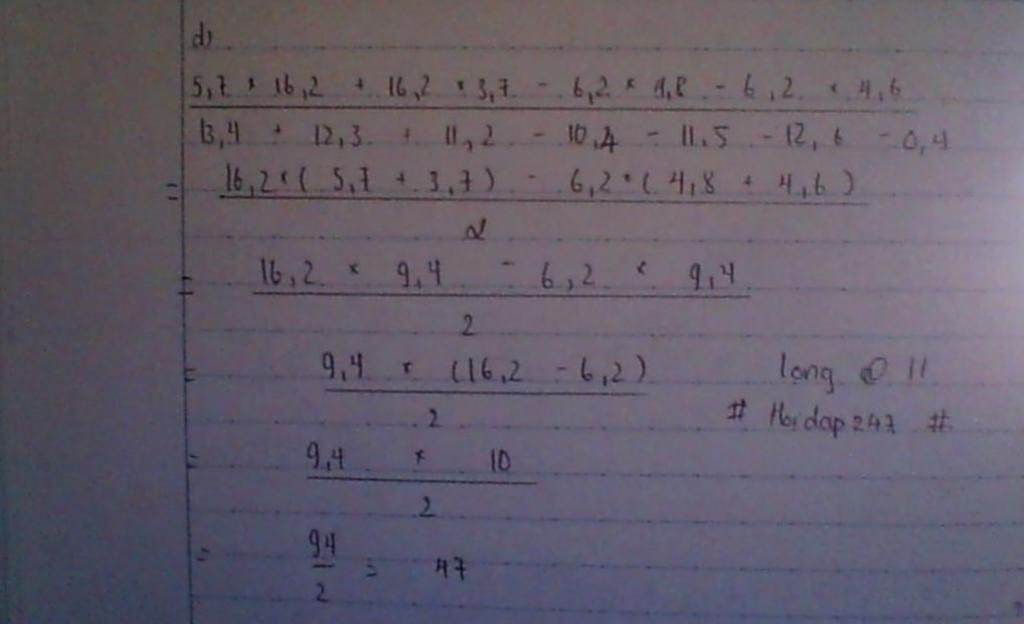 d)
5,7 * 16,2 + 16,2 * 3,7 - 6,2 * 4,8 - 6,2 * 4,6
13,4 + 12,3 + 11,2 - 10,4 - 11,5 - 12,6 - 0,4
= 16,2 * ( 5,7 + 3,7 ) - 6,2 * ( 4,8 + 4,6 )
2
= 16,2 * 9,4 - 6,2 * 9,4
2
= 9,4 * (16,2 - 6,2)
2
long @ 11
# Hoidap247 #
= 9,4 * 10
2
= 94
2
= 47